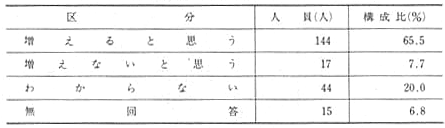 区分 人員(人) 構成比(%)
増えると思う 144 65.5
増えないと思う 17 7.7
わからない 44 20.0
無回答 15 6.8